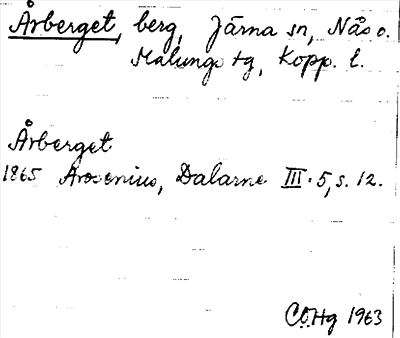 Årberget, berg, Järna sn, Nås o.
Malungs tg, Kopp. l.
Årberget
1865 Arosenius, Dalarne III:5, s. 12.
COHg 1963